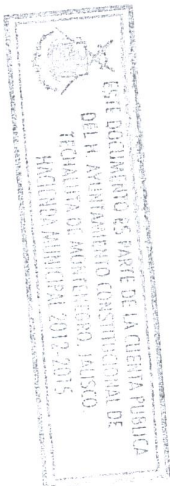 ESTE DOCUMENTO ES PARTE DE LA CUENTA PUBLICA
DEL H. AYUNTAMIENTO CONSTITUCIONAL DE
TECHALUTA DE MONTENEGRO, JALISCO
HACIENDA MUNICIPAL 2012 2015